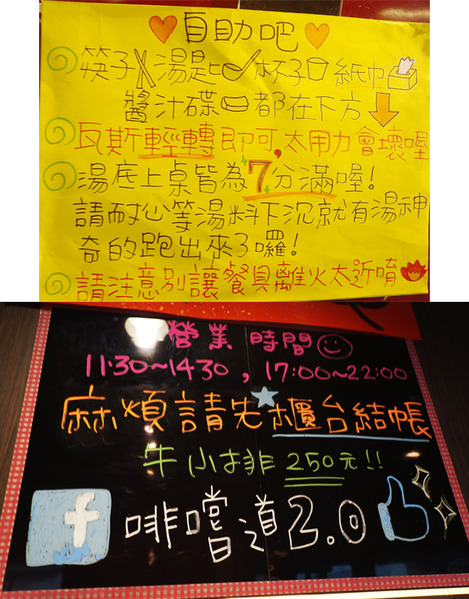 自助吧
筷子湯匙杯子紙巾
醬汁碟都在下方
瓦斯輕轉即可,太用力會壞喔
湯底上桌皆為7分滿喔!
請耐心等湯料下沉就有湯神
奇的跑出來了囉!
請注意別讓餐具離火太近唷
營業時間
11:30~14:30 , 17:00~22:00
麻煩請先櫃台結帳
牛小排 250元!!
f 啡嚐道2.0